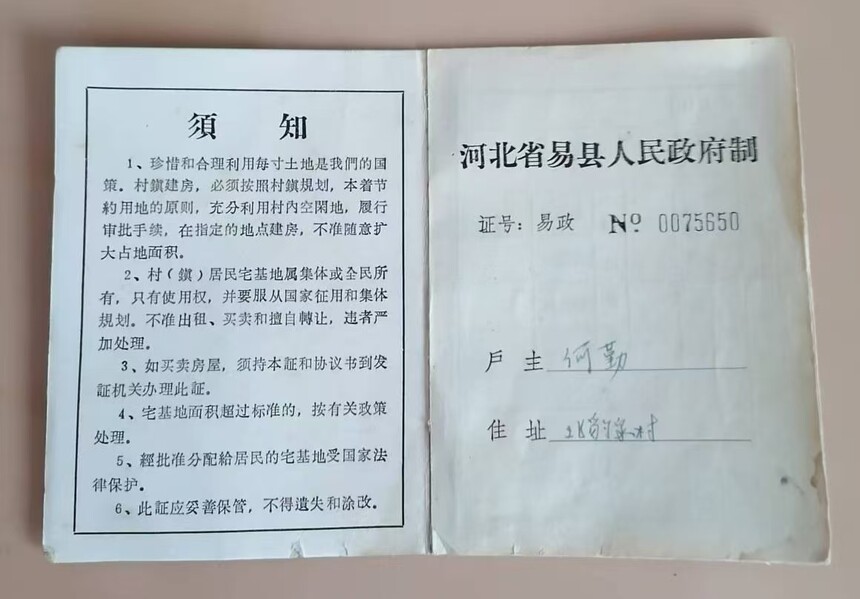 須 知
1、珍惜和合理利用每寸土地是我們的国
策。村鎮建房，必须按照村鎮規划，本着节
約用地的原则，充分利用村内空閑地，履行
审批手续，在指定的地点建房，不准随意扩
大占地面积。
2、村（鎮）居民宅基地属集体或全民所
有，只有使用权，并要服从国家征用和集体
規划。不准出租、买卖和擅自轉让，违者严
加处理。
3、如买卖房屋，须持本証和协议书到发
証机关办理此証。
4、宅基地面积超过标准的，按有关政策
处理。
5、經批准分配給居民的宅基地受国家法
律保护。
6、此証应妥善保管，不得遗失和涂改。
河北省易县人民政府制
证号：易政 № 0075650
戶 主 何勤
住 址 村